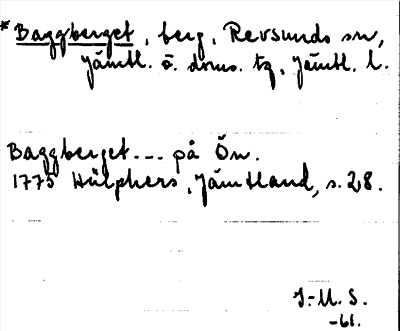 *Baggberget, berg, Revsunds sn,
Jämtl. ö. doms. tg, Jämtl. l.
Baggberget... på Ön.
1775 Hülphers, Jämtland, s. 28.
J.-M. S.
-61.